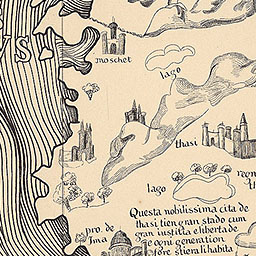 VS
moschet
lago
thasi
regn
lago
Questa nobilissima cita de
thasi tien gran stado cum
gran iustitia e liberta de
ogni generation
pro. de
Jma
fore stieri habita